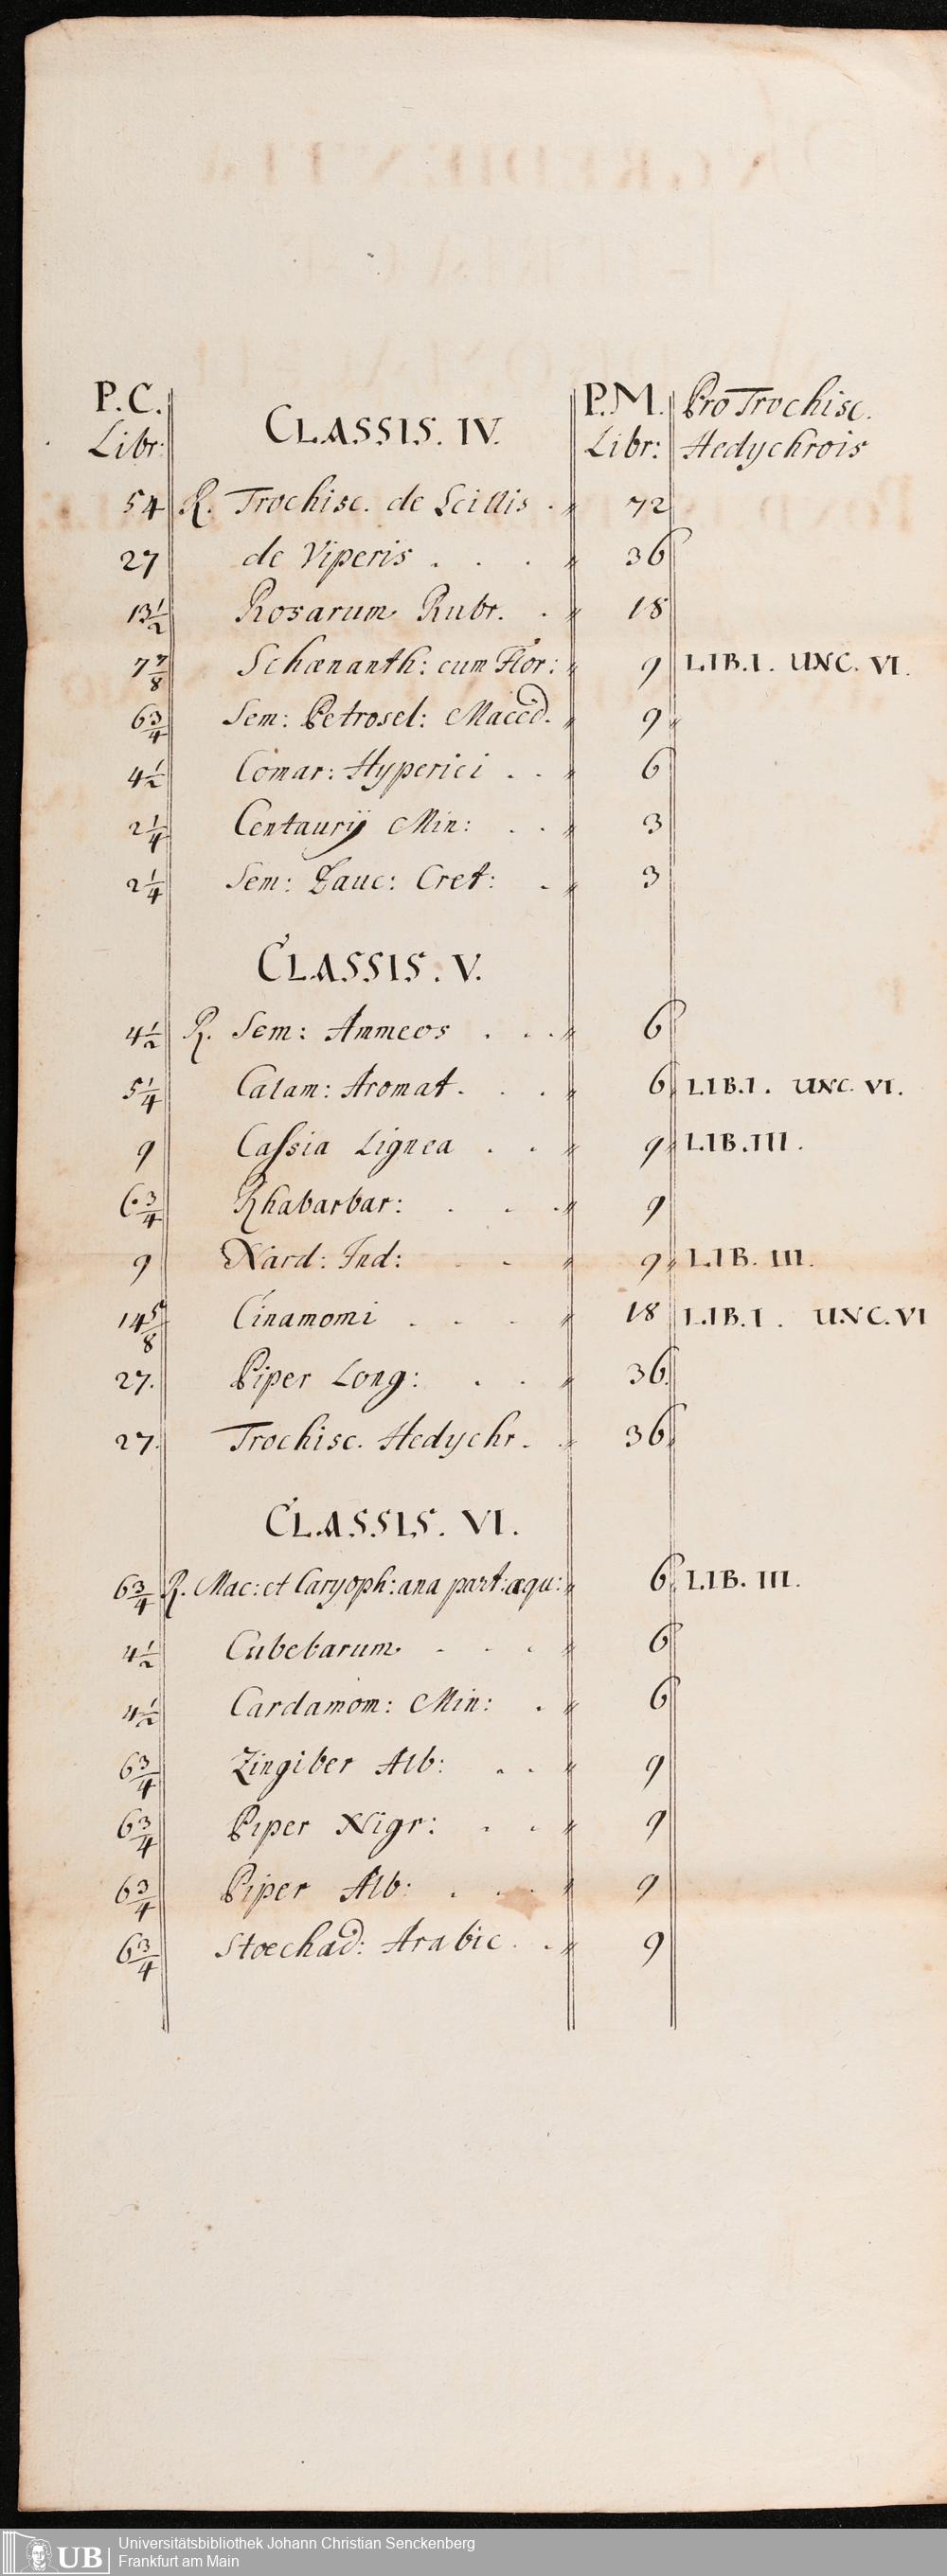 P.C. P.M. Pro Trochisc.
Libr: CLASSIS. IV. Libr: Hedychrois
54 R. Trochisc. de Scillis . 72
27 de Viperis . . . 36
13 1/2 Rosarum Rubr. . 18
7 7/8 Schœnanth: cum Flor: 9 LIB. I. UNC. VI.
6 3/4 Sem: Petrosel: Maced. 9
4 1/2 Comar: Hyperici . . 6
2 1/4 Centaurij Min: . . 3
2 1/4 Sem: Dauc: Cret: . 3
CLASSIS. V.
4 1/2 R. Sem: Ammeos . . . 6
5 1/4 Calam: Aromat. . . 6 LIB. I. UNC. VI.
9 Caſsia Lignea . . 9 LIB. III.
6 3/4 Rhabarbar: . . . 9
9 Nard: Ind: . . 9 LIB. III.
14 5/8 Cinamomi . . . 18 LIB. I. UNC. VI
27. Piper Long: . . 36.
27. Trochisc. Hedychr. . 36
CLASSIS. VI.
6 3/4 R. Mac: et Caryoph: ana part: æqu: 6 LIB. III.
4 1/2 Cubebarum . . . 6
4 1/2 Cardamom: Min: . 6
6 3/4 Zingiber Alb: . . 9
6 3/4 Piper Nigr: . . 9
6 3/4 Piper Alb: . . . 9
6 3/4 Stoechad: Arabic . . 9
UB Universitätsbibliothek Johann Christian Senckenberg
Frankfurt am Main